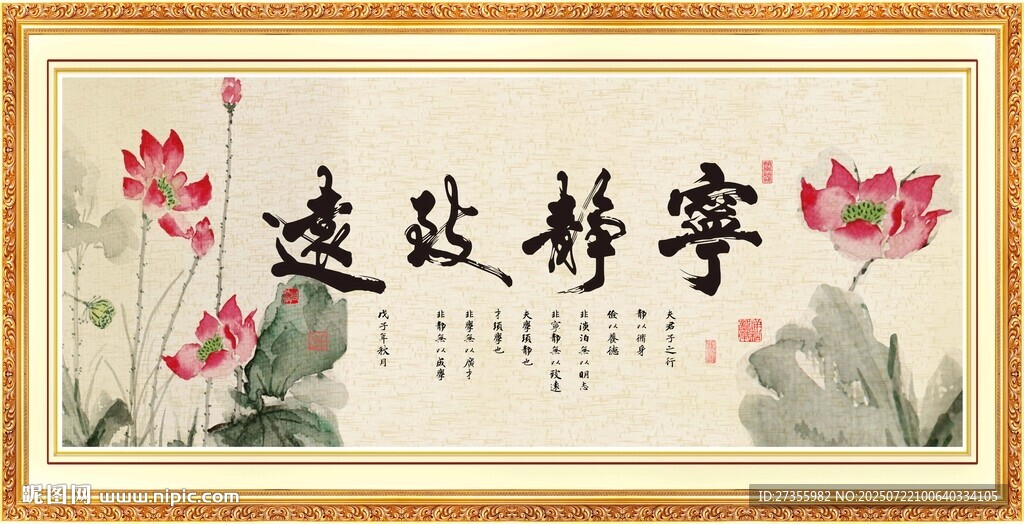 寧靜致遠
夫君子之行
靜以脩身
儉以養德
非澹泊無以明志
非寧靜無以致遠
夫學須靜也
才須學也
非學無以廣才
非靜無以成學
戊子年秋月
昵图网 www.nipic.com
ID:27355982 NO:20250722100640334105